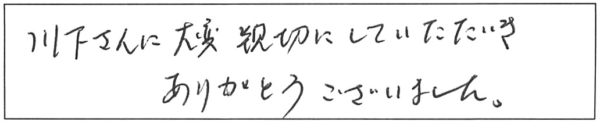 川下さんに大変親切にしていただいき
ありがとうございました。